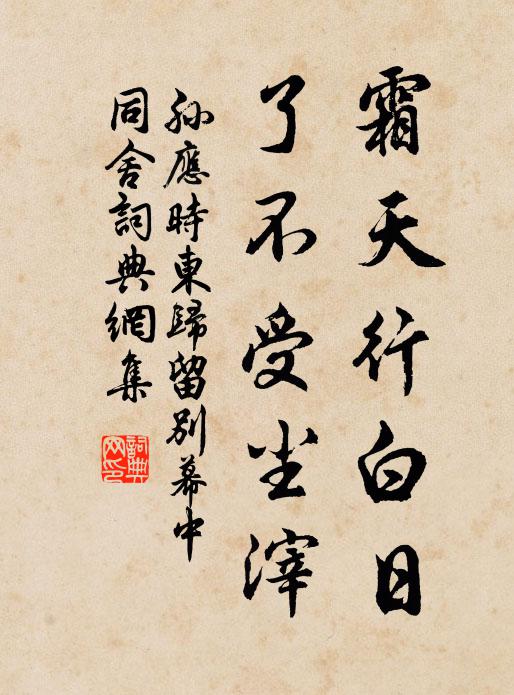 霜天行白日
了不受尘滓
孙應時東歸留别幕中
同舍詞典網集
詞典网印